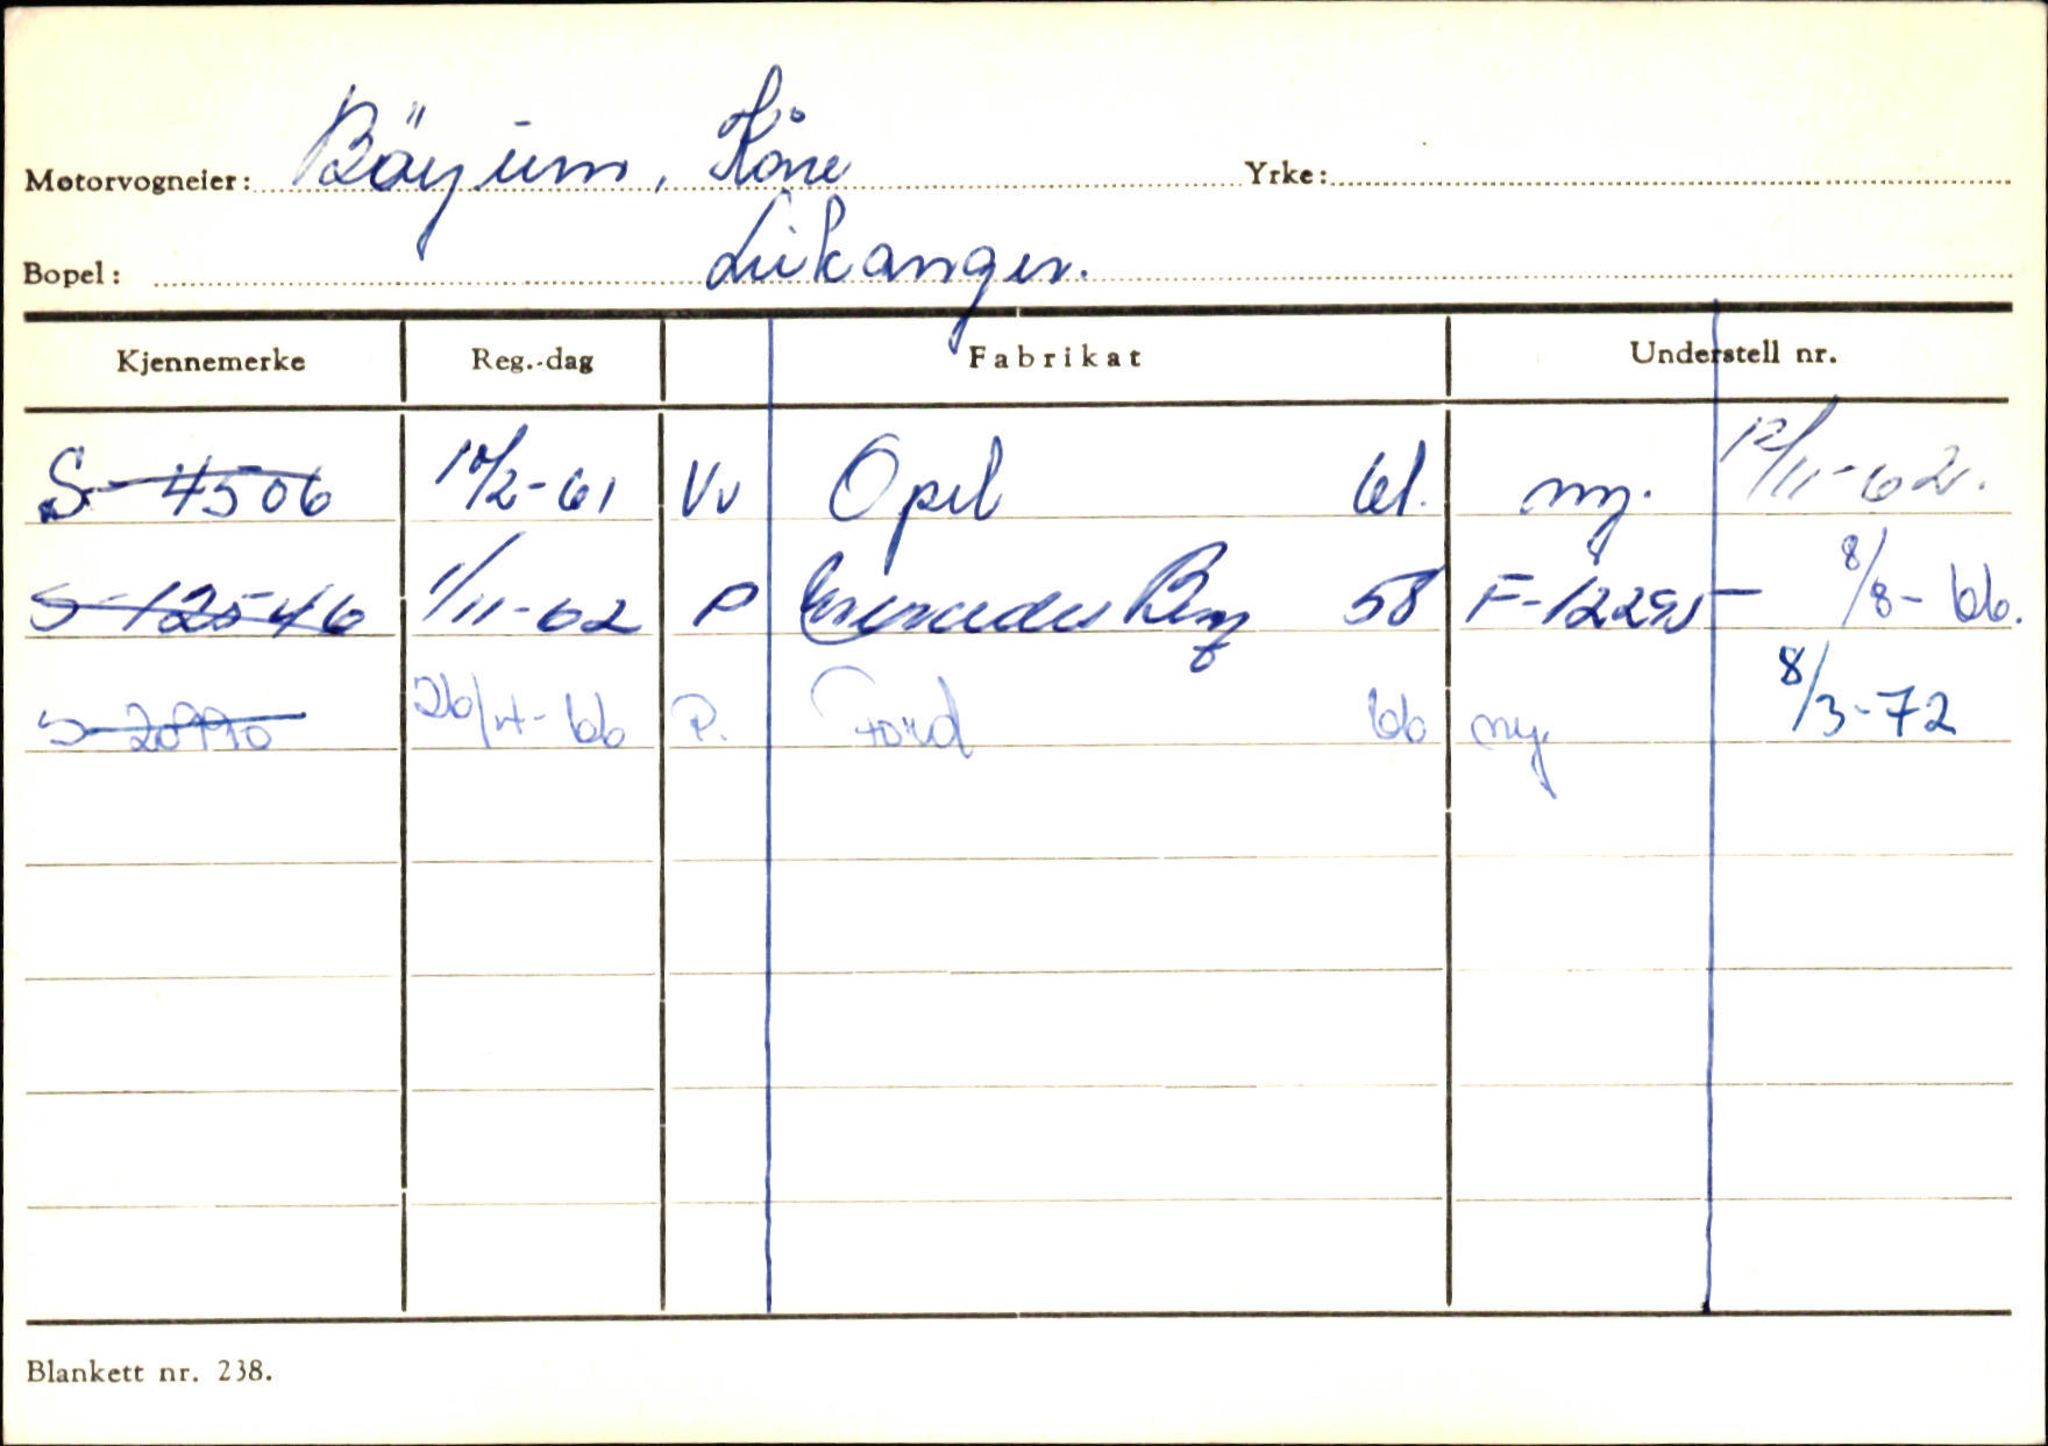 Motorvogneier: Böyum, Kåre Yrke:
Bopel: Leikanger.
Kjennemerke Reg.-dag Fabrikat Understell nr.
S-4506 10/2-61 Vv Opel 61. ny. 12/11-62.
S-12546 1/11-62 P Mercedes Benz 58 F-12295- 8/8-66.
26/4-66 P. Ford 66 ny. 8/3-72
Blankett nr. 238.